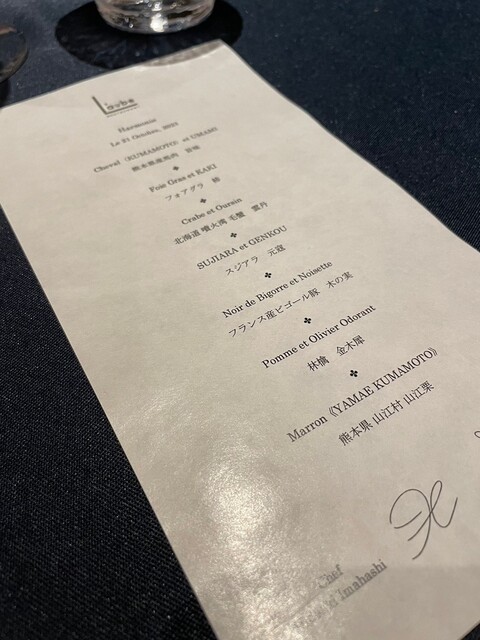 L'aube
Harmonie
Le 21 Octobre, 2021
Cheval 《KUMAMOTO》 et UMAMI
熊本県産馬肉 旨味
Foie Gras et KAKI
フォアグラ 柿
Crabe et Oursin
北海道 噴火湾 毛蟹 雲丹
SUJIARA et GENKOU
スジアラ 元寇
Noir de Bigorre et Noisette
フランス産ビゴール豚 木の実
Pomme et Olivier Odorant
林檎 金木犀
Marron 《YAMAE KUMAMOTO》
熊本県 山江村 山江栗
Chef
Imahashi